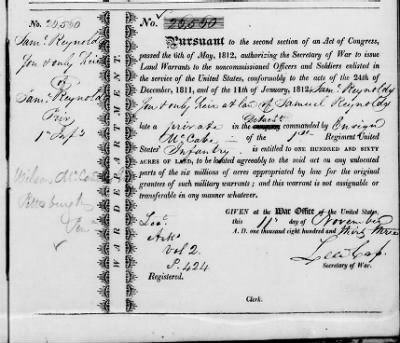 No. 26560
Saml. Reynolds
Son & only heir
of
Saml. Reynolds
Priv
1st Infy
Wilson McCa
Pittsburgh
Pena
WAR DEPARTMENT.
No. 26560
Pursuant to the second section of an Act of Congress,
passed the 6th of May, 1812, authorizing the Secretary of War to issue
Land Warrants to the noncommissioned Officers and Soldiers enlisted in
the service of the United States, conformably to the acts of the 24th of
December, 1811, and of the 11th of January, 1812; Saml. Reynolds
Son & only heir at law of Samuel Reynolds
late a private in the Detacht. commanded by Ensign
McCabe of the 1st Regiment United
States' Infantry. is entitled to ONE HUNDRED AND SIXTY
ACRES OF LAND, to be located agreeably to the said act on any unlocated
parts of the six millions of acres appropriated by law for the original
grantees of such military warrants; and this warrant is not assignable or
transferable in any manner whatever.
GIVEN at the War Office of the United States,
this 11th day of November
A. D. one thousand eight hundred and thirty three
Lew Cass
Secretary of War.
Arks
vol 2.
P. 424
Registered.
Clerk.